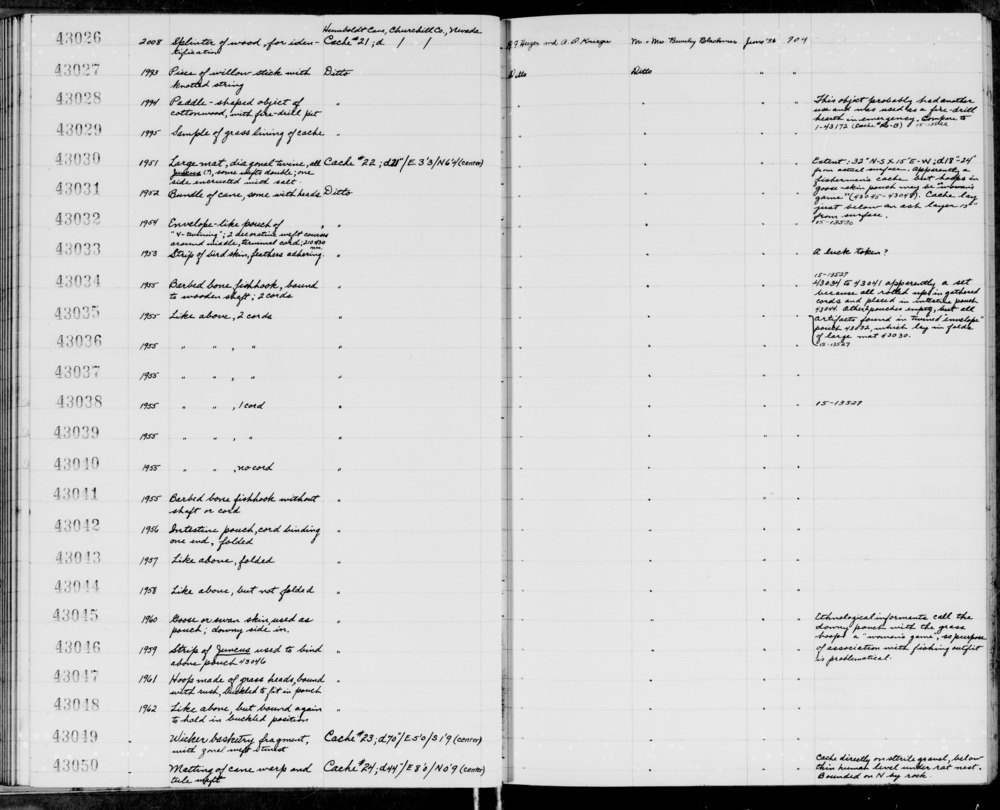 Humboldt Cave, Churchill Co., Nevada
43026 2008 Splinter of wood, for iden- Cache #21; d. / / R.F. Heizer and A.D. Krieger Mr. & Mrs. June '36 904
tification
43027 1993 Piece of willow stick with Ditto Ditto Ditto " "
knotted string
43028 1994 Paddle-shaped object of " " " " " This object probably had another
cottonwood, with fire-drill pit use and was used as a fire-drill
hearth in emergency. Compare to
43029 1995 Sample of grass lining of cache " " " " " 1-43172 (Cache
43030 1951 Large mat, diagonal twine, all Cache #22; d28"/E3'3/N64 (center) " " " " Extent: 32" N-S x 15" E-W; d18"-24"
Juncus (?), some wefts double; one from actual surface. Apparently a
side encrusted with salt. fisherman's cache but hoops in
43031 1952 Bundle of cane, some with heads Ditto " " " " goose-skin pouch may be "woman's
game" (43045-43048). Cache lay
just below an ash layer 13"
43032 1954 Envelope-like pouch of " " " " " from surface.
"x-twining"; 2 decorative weft courses 15-13530
around middle, terminal cord; 210x130
mm.
43033 1953 Strip of bird skin, feathers adhering. " " " " " A luck token?
15-13527
43034 1955 Barbed bone fishhook, bound " " " " " 43034 to 43041 apparently a set
to wooden shaft; 2 cords because all rolled up in gathered
cords and placed in intestine pouch
43035 1955 Like above, 2 cords " " " " " 43044. Other pouches empty, but all
artifacts found in twined "envelope"
pouch 43032, which lay in folds
43036 1955 " " , " " " " " " of large mat 43030.
15-13527
43037 1955 " " , " " " " " "
43038 1955 " " , 1 cord " " " " " 15-13527
43039 1955 " " , " " " " " "
43040 1955 " " , no cord " " " " "
43041 1955 Barbed bone fishhook without " " " " "
shaft or cord
43042 1956 Intestine pouch, cord binding " " " " "
one end, folded
43043 1957 Like above, folded " " " " "
43044 1958 Like above, but not folded " " " " "
43045 1960 Goose or swan skin, used as " " " " " Ethnological informants call the
pouch; downy side in. downy pouch with the grass
hoops a "woman's game", so purpose
43046 1959 Strips of Juncus used to bind " " " " " of association with fishing outfit
above pouch 43046 is problematical.
43047 1961 Hoop made of grass heads, bound " " " " "
with rush, buckled to fit in pouch
43048 1962 Like above, but bound again " " " " "
to hold in buckled position
43049 Wicker basketry fragment, Cache #23; d70"/E5'0/S1'9 (center) " " " "
with zonal weft twist
43050 Matting of cane warp and Cache #24; d44"/E8'6/N0'9 (center) " " " " Cache directly on sterile gravel, below
tule weft thin human level under rat nest.
Bounded on N by rock.